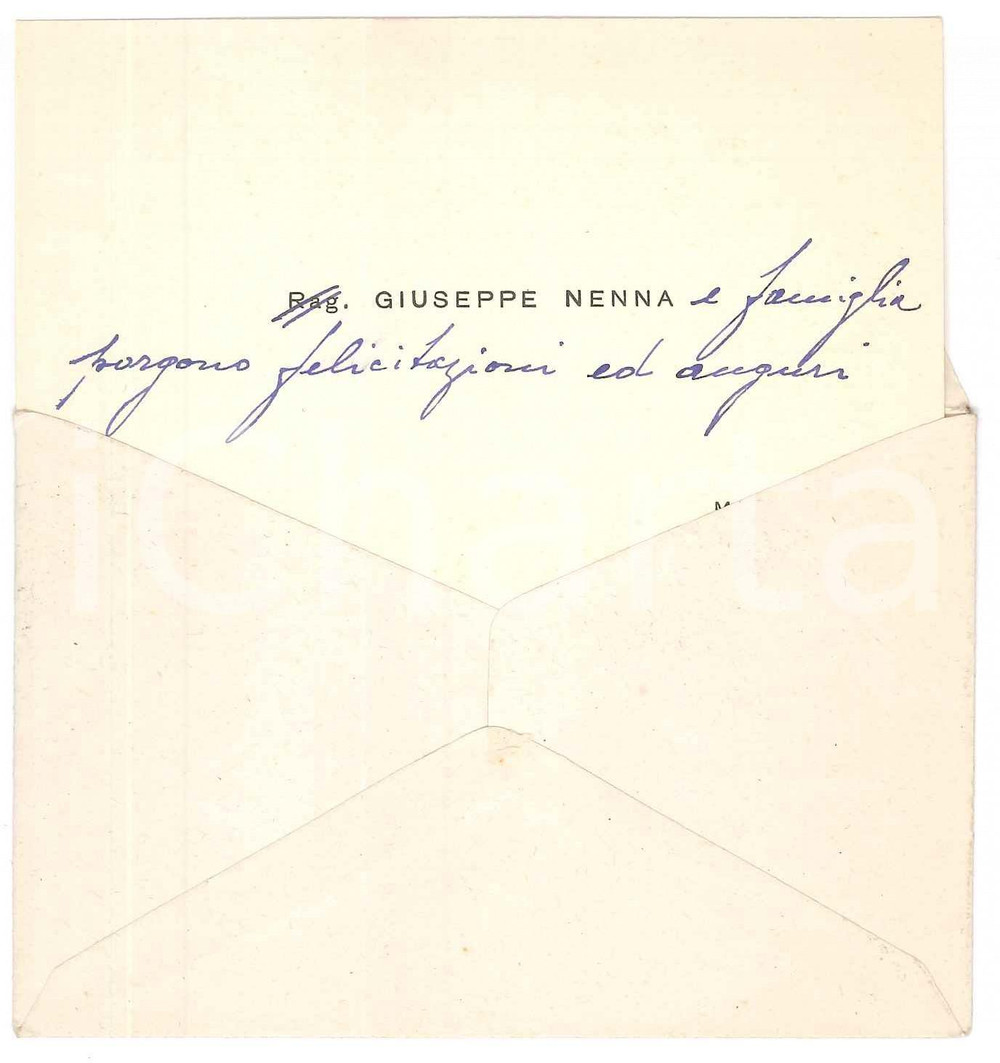 Rag. GIUSEPPE NENNA e famiglia
porgono felicitazioni ed auguri
M
iCharta